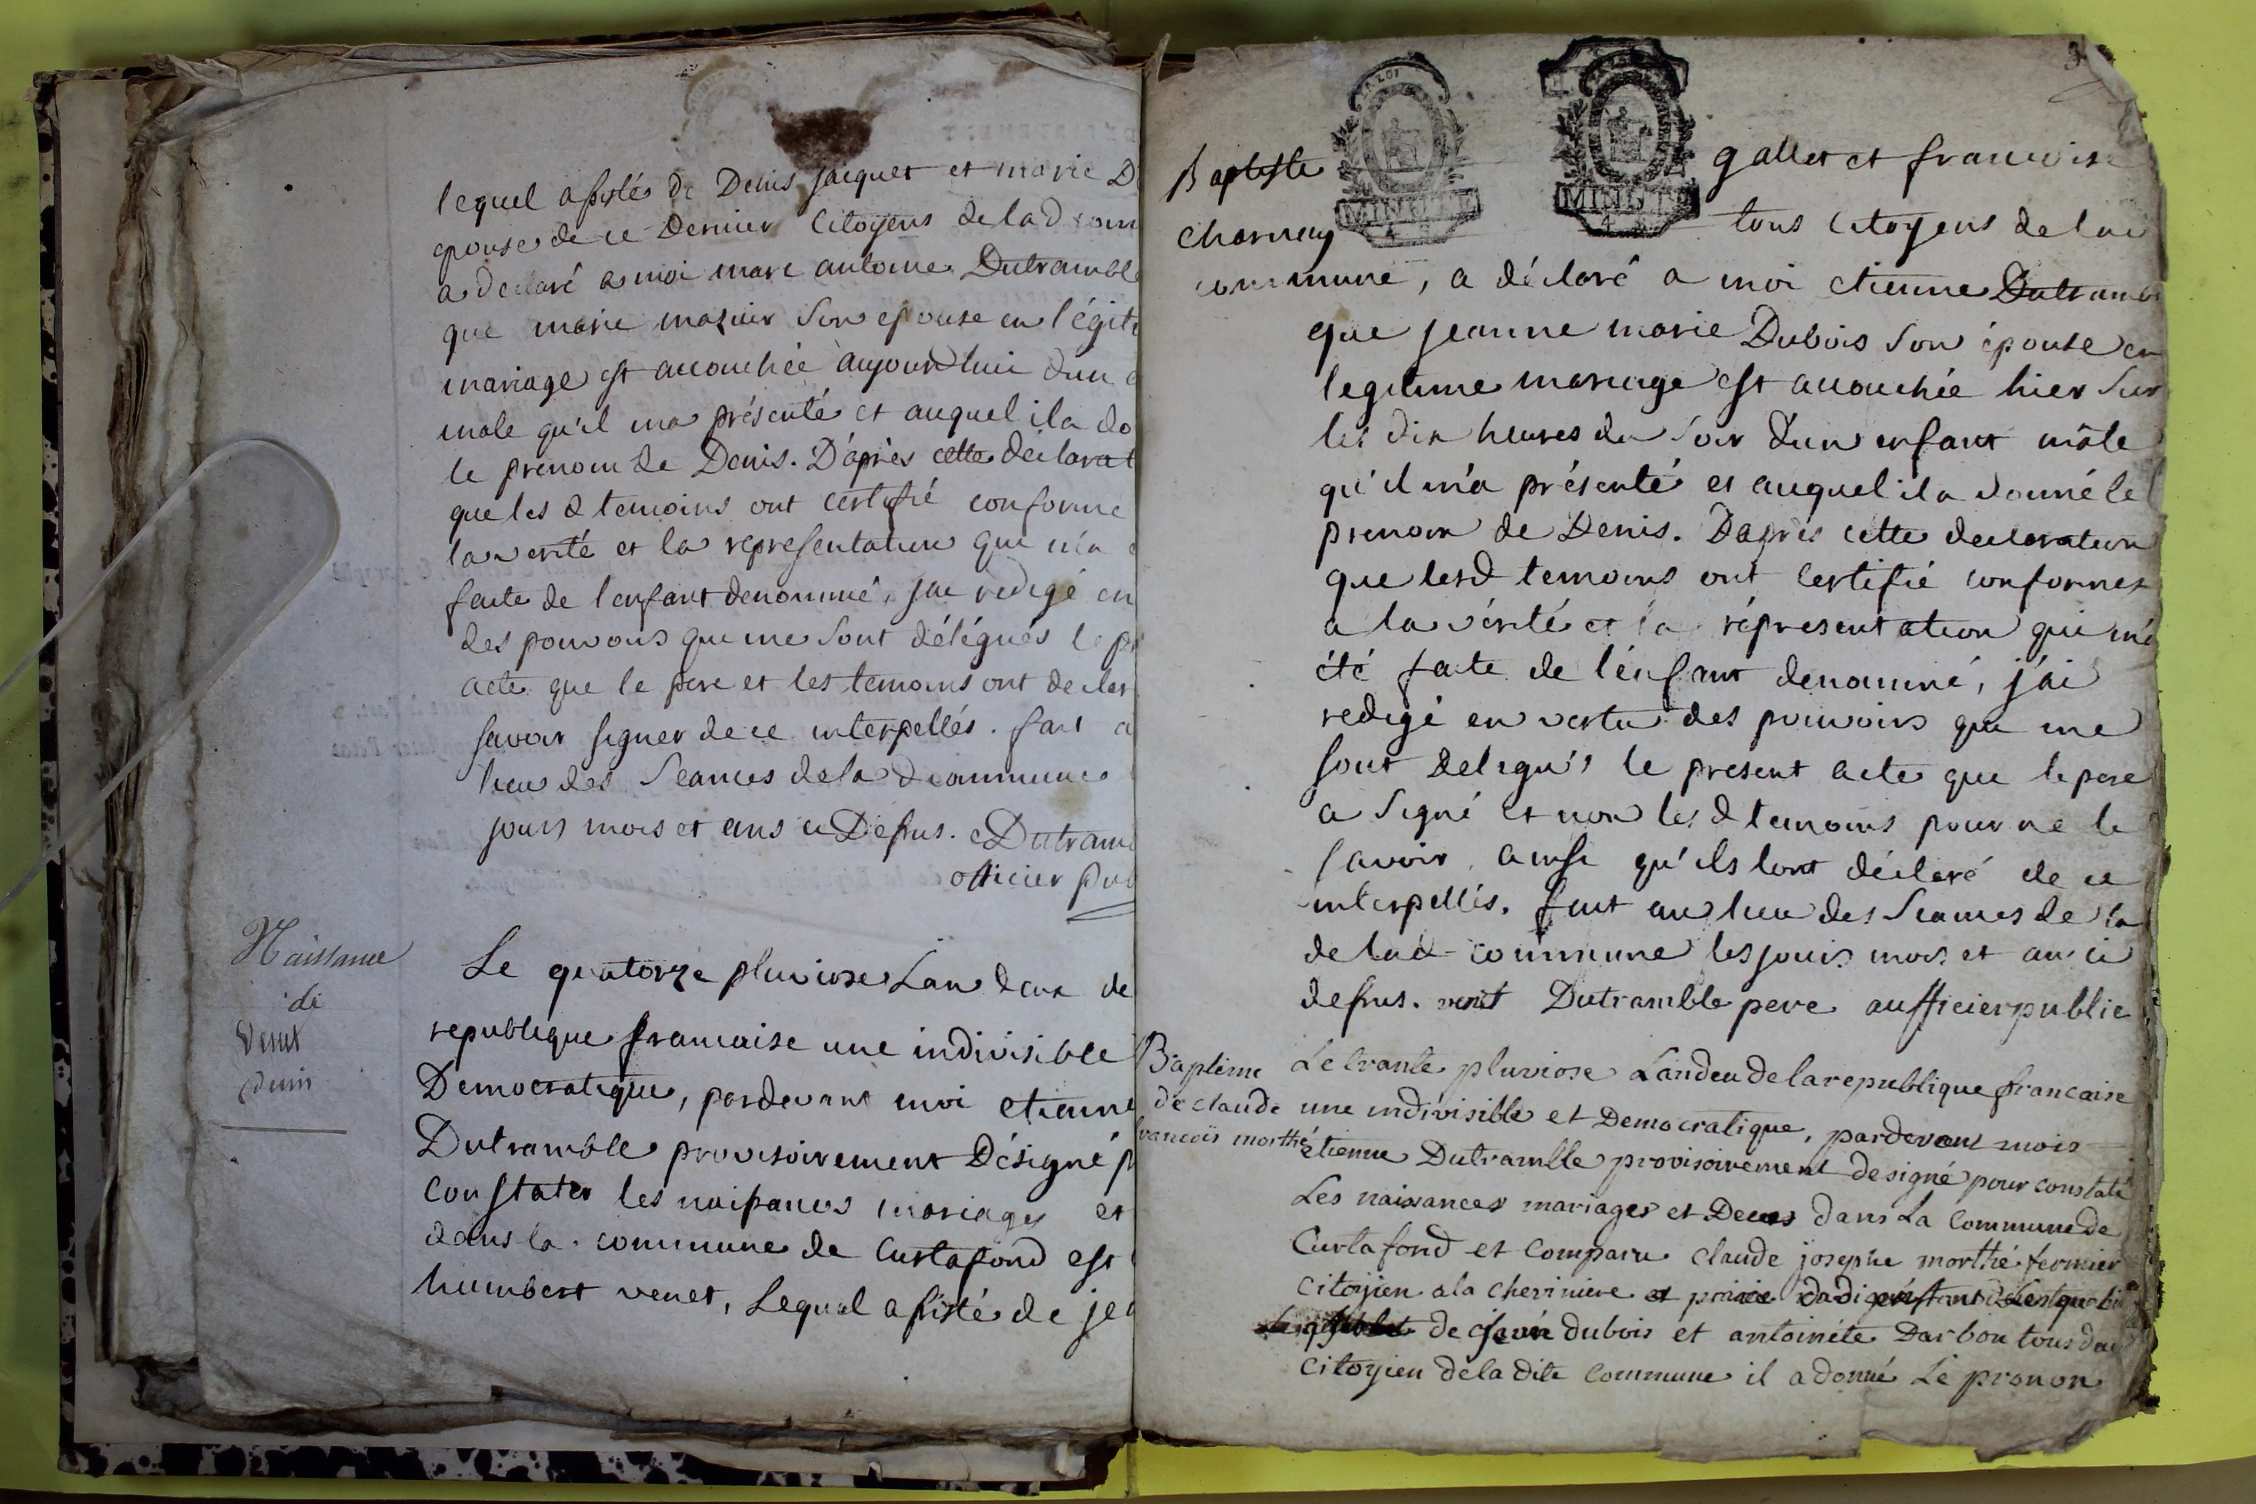 lequel assisté de Denis jacquet et marie D
epouse de ce Dernier Citoyens de la d com
a declaré a moi marc antoine Dutrambl
que marie mazuir Son epouse en légit
mariage est accouchée aujourdhui dun
male qu'il ma présenté et auquel il a do
le prenom de Denis. D'après cette declarat
que les d temoins ont certifié conforme
la verité et la representation qui m'a
faite de l'enfant denommé, jai redigé en
des pouvoirs qui me sont délégués le p
acte que le pere et les temoins ont decler
savoir signer de ce interpellés. fait a
lieu des Seances de la d commune
jours mois et ans ci Dessus. Dutram
officier pub
Naissance
de
Venet
denis
Le quatorze pluviose Lan deux de
republique francaise une indivisible
Democratique, pardevant moi etienne
Dutramble provisoirement Désigné p
constater les naissances mariages et
dans la commune de Curtafond est
humbert venet, Lequel assisté de je
3
LA LOI
MINUTE
4
MINUTE
4
Baptiste gallet et francoise
charnay tous citoyens de lad
commune, a déclaré a moi etienne Dutramb
que jeanne marie Dubois son épouse en
legitime mariage est accouchée hier sur
les dix heures du soir d'un enfant mâle
qu'il m'a présenté et auquel il a donné le
prenom de Denis. D'après cette declaration
que lesd temoins ont certifié conformer
a la vérité et la réprésentation qui m'a
été faite de l'enfant denommé, j'ai
redigé en vertu des pouvoirs qui me
sont delegués le present acte que le pere
a signé et non les d temoins pour ne le
savoir ainsi qu'ils lont déclaré de ce
interpellés. fait au lieu des Seances de la
de lad commune les jours mois et an ci
dessus. venet Dutramble pere aufficier public
Baptéme
de claude
francois morthé
Le trante pluviose Landeu de la republique francaise
une indivisible et Democratique, pardevant mois
étienne Dutramble provisoirement designé pour constaté
Les naissances mariages et Deces dans La Commune de
Curtafond et comparu claude josephe morthé fermier
citoyien a la cheriniere
de dubois et antoinéte Darbon tous deu
citoyien de la dite commune il a donné Le pronon